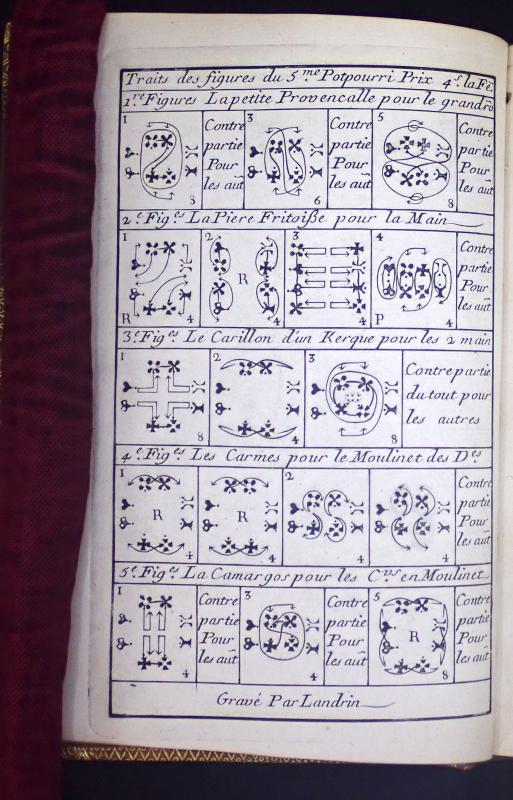 Traits des figures du 5.me Potpourri Prix 4.s la Fe.
1.re Figures La petite Provencalle pour le grand rõ
1 Contre 3 Contre 5 Contre
partie partie partie
Pour Pour Pour
les aut̃ les aut̃ les aut̃
8 6 8
2.e Fig.es La Piere Fritoiße pour la Main
1 2 3 4 Contre
partie
R Pour
les aut̃
R 4 4 4 P 4
3.e Fig.es Le Carillon d'un Kerque pour les 2 main
1 2 3 Contre partie
du tout pour
les autres
8 4 8
4.e Fig.es Les Carmes pour le Moulinet des D.es
1 2 Contre
partie
R R Pour
les aut̃
4 4 4 4
5.e Fig.es La Camargos pour les C.vrs en Moulinet
1 Contre 3 Contre 5 Contre
partie partie partie
Pour Pour R Pour
les aut̃ les aut̃ les aut̃
4 4 8
Gravé Par Landrin